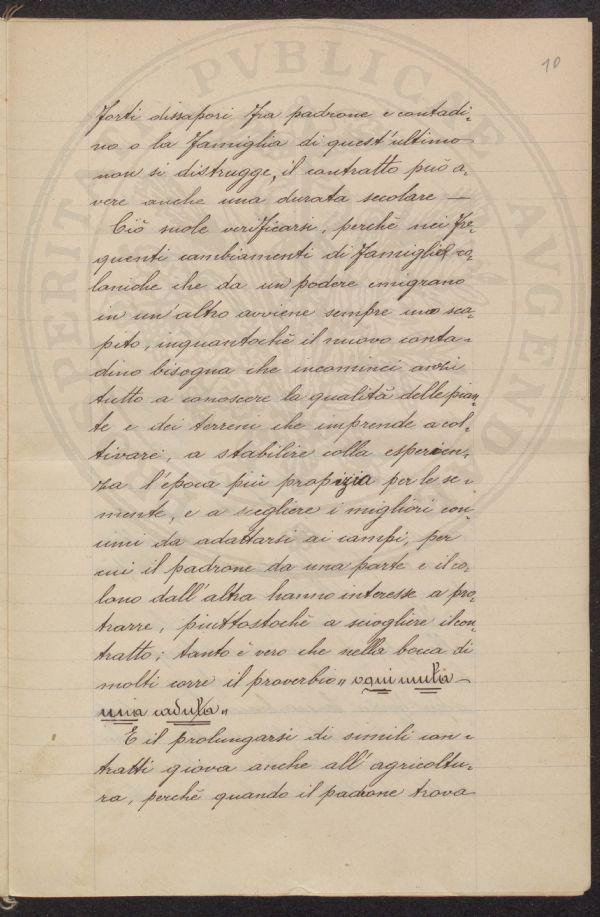 10
forti dissapori fra padrone e contadi-
no o la famiglia di quest'ultimo
non si distrugge, il contratto può a-
vere anche una durata secolare —
Ciò suole verificarsi, perchè nei fre-
quenti cambiamenti di famiglie co-
loniche che da un podere emigrano
in un'altro avviene sempre uno sca-
pito, inquantochè il nuovo conta-
dino bisogna che incominci anzi
tutto a conoscere la qualità delle pian-
te e dei terreni che imprende a col-
tivare, a stabilire colla esperien-
za l'epoca più propizia per le se-
mente, e a scegliere i migliori con-
cimi da adattarsi ai campi, per
cui il padrone da una parte e il co-
lono dall'altra hanno interesse a pro-
trarre, piuttostochè a sciogliere il con-
tratto; tanto è vero che nella bocca di
molti corre il proverbio „ ogni muta
una caduta „
E il prolungarsi di simili con-
tratti giova anche all'agricoltu-
ra, perchè quando il padrone trova